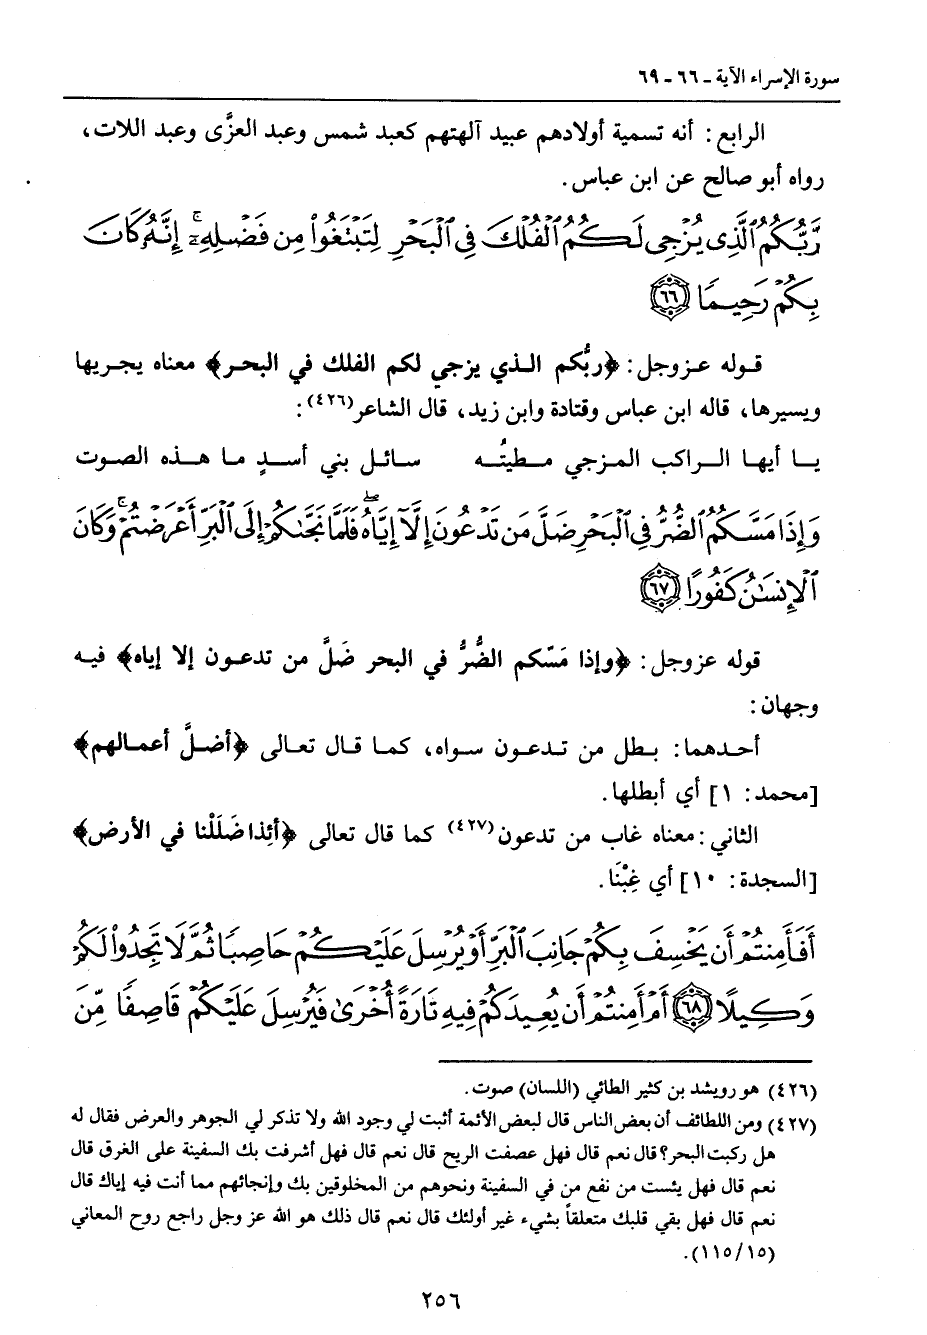 سورة الإسراء الآية ـ ٦٦ ـ ٦٩
الرابع: أنه تسمية أولادهم عبيد آلهتهم كعبد شمس وعبد العزَّى وعبد اللات،
رواه أبو صالح عن ابن عباس.
رَّبُّكُمُ ٱلَّذِى يُزْجِى لَكُمُ ٱلْفُلْكَ فِى ٱلْبَحْرِ لِتَبْتَغُوا۟ مِن فَضْلِهِۦٓ ۚ إِنَّهُۥ كَانَ
بِكُمْ رَحِيمًا ٦٦
قوله عزوجل: ﴿ربُّكم الذي يزجي لكم الفلك في البحر﴾ معناه يجريها
ويسيرها، قاله ابن عباس وقتادة وابن زيد، قال الشاعر(٤٢٦):
يا أيها الراكب المزجي مطيتُه سائل بني أسدٍ ما هذه الصوت
وَإِذَا مَسَّكُمُ ٱلضُّرُّ فِى ٱلْبَحْرِ ضَلَّ مَن تَدْعُونَ إِلَّآ إِيَّاهُ ۖ فَلَمَّا نَجَّىٰكُمْ إِلَى ٱلْبَرِّ أَعْرَضْتُمْ ۚ وَكَانَ
ٱلْإِنسَـٰنُ كَفُورًا ٦٧
قوله عزوجل: ﴿وإذا مَسّكم الضُّرُّ في البحر ضَلَّ من تدعون إلا إياه﴾ فيه
وجهان:
أحدهما: بطل من تدعون سواه، كما قال تعالى ﴿أضلَّ أعمالهم﴾
[محمد: ١] أي أبطلها.
الثاني: معناه غاب من تدعون(٤٢٧) كما قال تعالى ﴿أئِذا ضَلَلْنا في الأرض﴾
[السجدة: ١٠] أي غِبْنَا.
أَفَأَمِنتُمْ أَن يَخْسِفَ بِكُمْ جَانِبَ ٱلْبَرِّ أَوْ يُرْسِلَ عَلَيْكُمْ حَاصِبًا ثُمَّ لَا تَجِدُوا۟ لَكُمْ
وَكِيلًا ٦٨ أَمْ أَمِنتُمْ أَن يُعِيدَكُمْ فِيهِ تَارَةً أُخْرَىٰ فَيُرْسِلَ عَلَيْكُمْ قَاصِفًا مِّنَ
(٤٢٦) هو رويشد بن كثير الطائي (اللسان) صوت.
(٤٢٧) ومن اللطائف أن بعض الناس قال لبعض الأئمة أثبت لي وجود الله ولا تذكر لي الجوهر والعرض فقال له
هل ركبت البحر؟ قال نعم قال فهل عصفت الريح قال نعم قال فهل أشرفت بك السفينة على الغرق قال
نعم قال فهل يئست من نفع من في السفينة ونحوهم من المخلوقين بك وإنجائهم مما أنت فيه إياك قال
نعم قال فهل بقي قلبك متعلقاً بشيء غير أولئك قال نعم قال ذلك هو الله عز وجل راجع روح المعاني
(١١٥/١٥).
٢٥٦